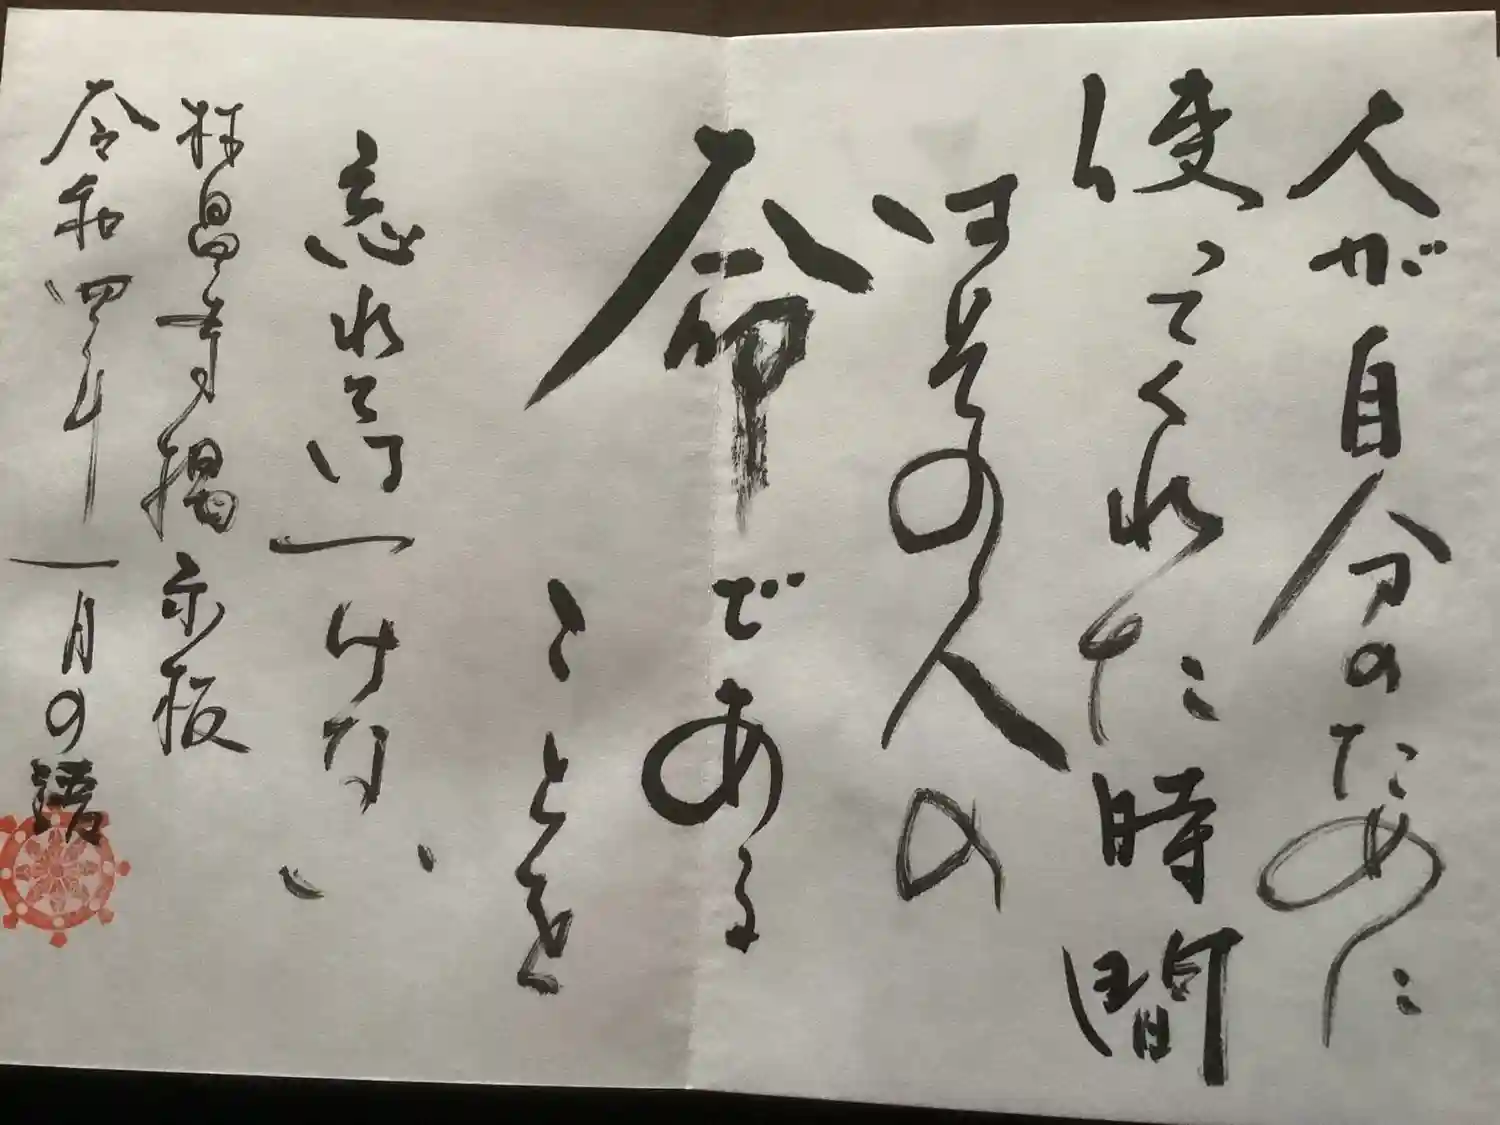 人が自分のために
使ってくれた時間
はその人の
命である
ことを
忘れてはいけない
林昌寺掲示板
令和四年一月の語